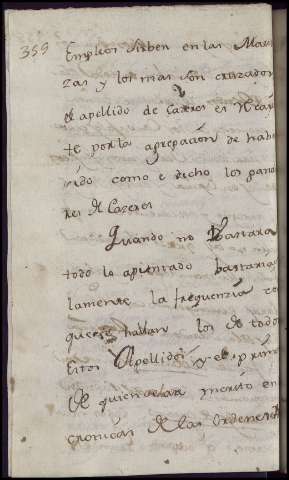 359
Empleos sirben en las Mar
zas y los mas son cruzados
el apellido de Cazeres es Nazar
te por la agregación de haber
sido como e dicho los pano
res de Cazeres
Quando no Bastara
todo lo apuntado bastaria so
lamente la frequenzia co
que se hallan los de todos
estos Apellidos y el prime
de quien estan inscrito en
cronicas de las Ordenes de